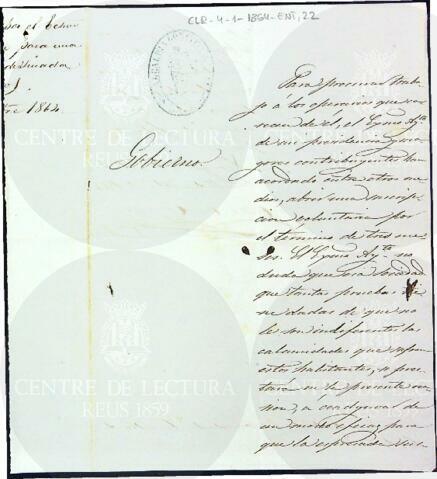 CLR-4-1-1864-ENT, 22
para una
destinada
1864
Gobierno
Para procurar traba-
jo a los operarios que ca-
recen de el, el Excmo Ayto
de mi presidencia y ma-
yores contribuyentes han
acordado entre otros me-
dios, abrir una suscrip-
cion voluntaria por
el término de tres me-
ses. El Excmo Ayto no
duda que esa sociedad
que tantas pruebas tie-
ne dadas de que no
le son indiferentes las
calamidades que
estos habitantes, se pres-
tará en la presente oca-
sion, a coadyuvar de
un modo eficaz para
que la espresada sus-
CENTRE DE LECTURA
REUS 1859